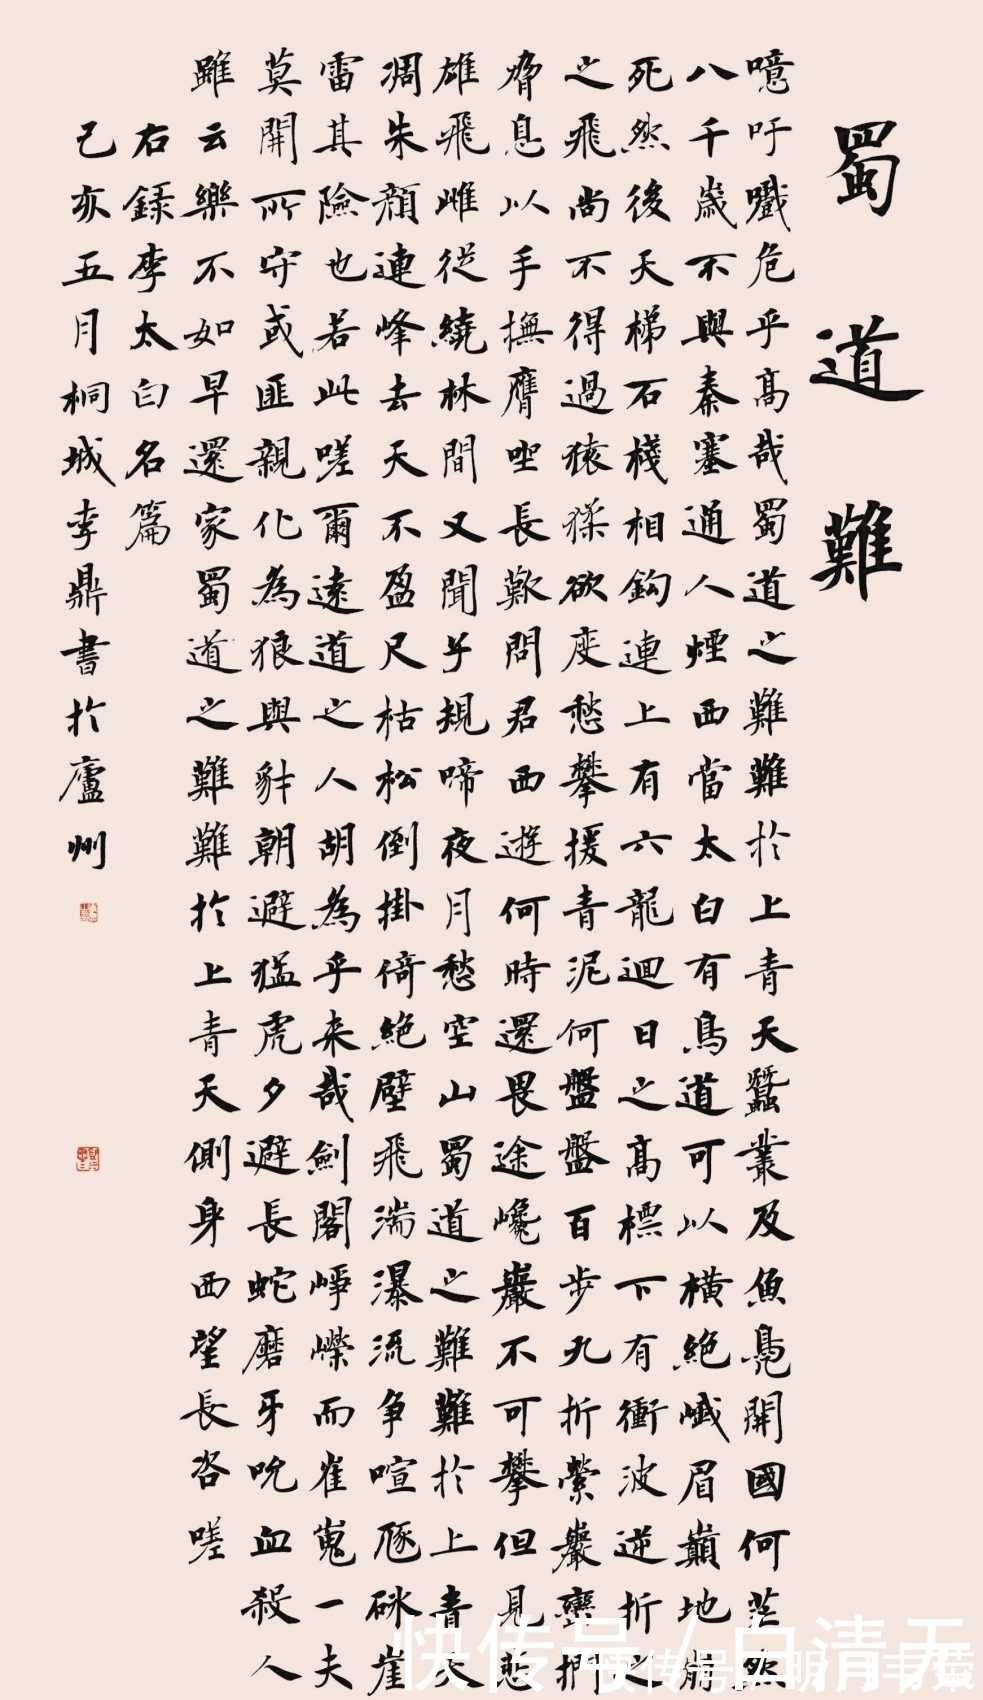 蜀道難
噫吁嚱危乎高哉蜀道之難難於上青天蠶叢及魚鳧開國何茫然
八千歲不與秦塞通人煙西當太白有鳥道可以橫絕峨眉巔地崩
死然後天梯石棧相鉤連上有六龍迴日之高標下有衝波逆折之
之飛尚不得過猿猱欲度愁攀援青泥何盤盤百步九折縈巖巒捫
脅息以手撫膺坐長歎問君西遊何時還畏途巉巖不可攀但見悲
雄飛雌從繞林間又聞子規啼夜月愁空山蜀道之難難於上青天
凋朱顏連峰去天不盈尺枯松倒掛倚絕壁飛湍瀑流爭喧豗砯崖
雷其險也若此嗟爾遠道之人胡為乎來哉劍閣崢嶸而崔嵬一夫
莫開所守或匪親化為狼與豺朝避猛虎夕避長蛇磨牙吮血殺人
雖云樂不如早還家蜀道之難難於上青天側身西望長咨嗟
右錄李太白名篇
己亥五月桐城李鼎書於廬州
快传号/白清天